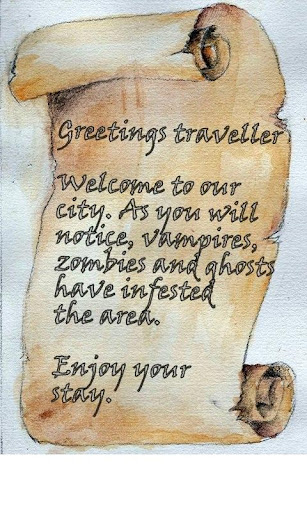 Greetings traveller
Welcome to our
city. As you will
notice, vampires,
zombies and ghosts
have infested
the area.
Enjoy your
stay.